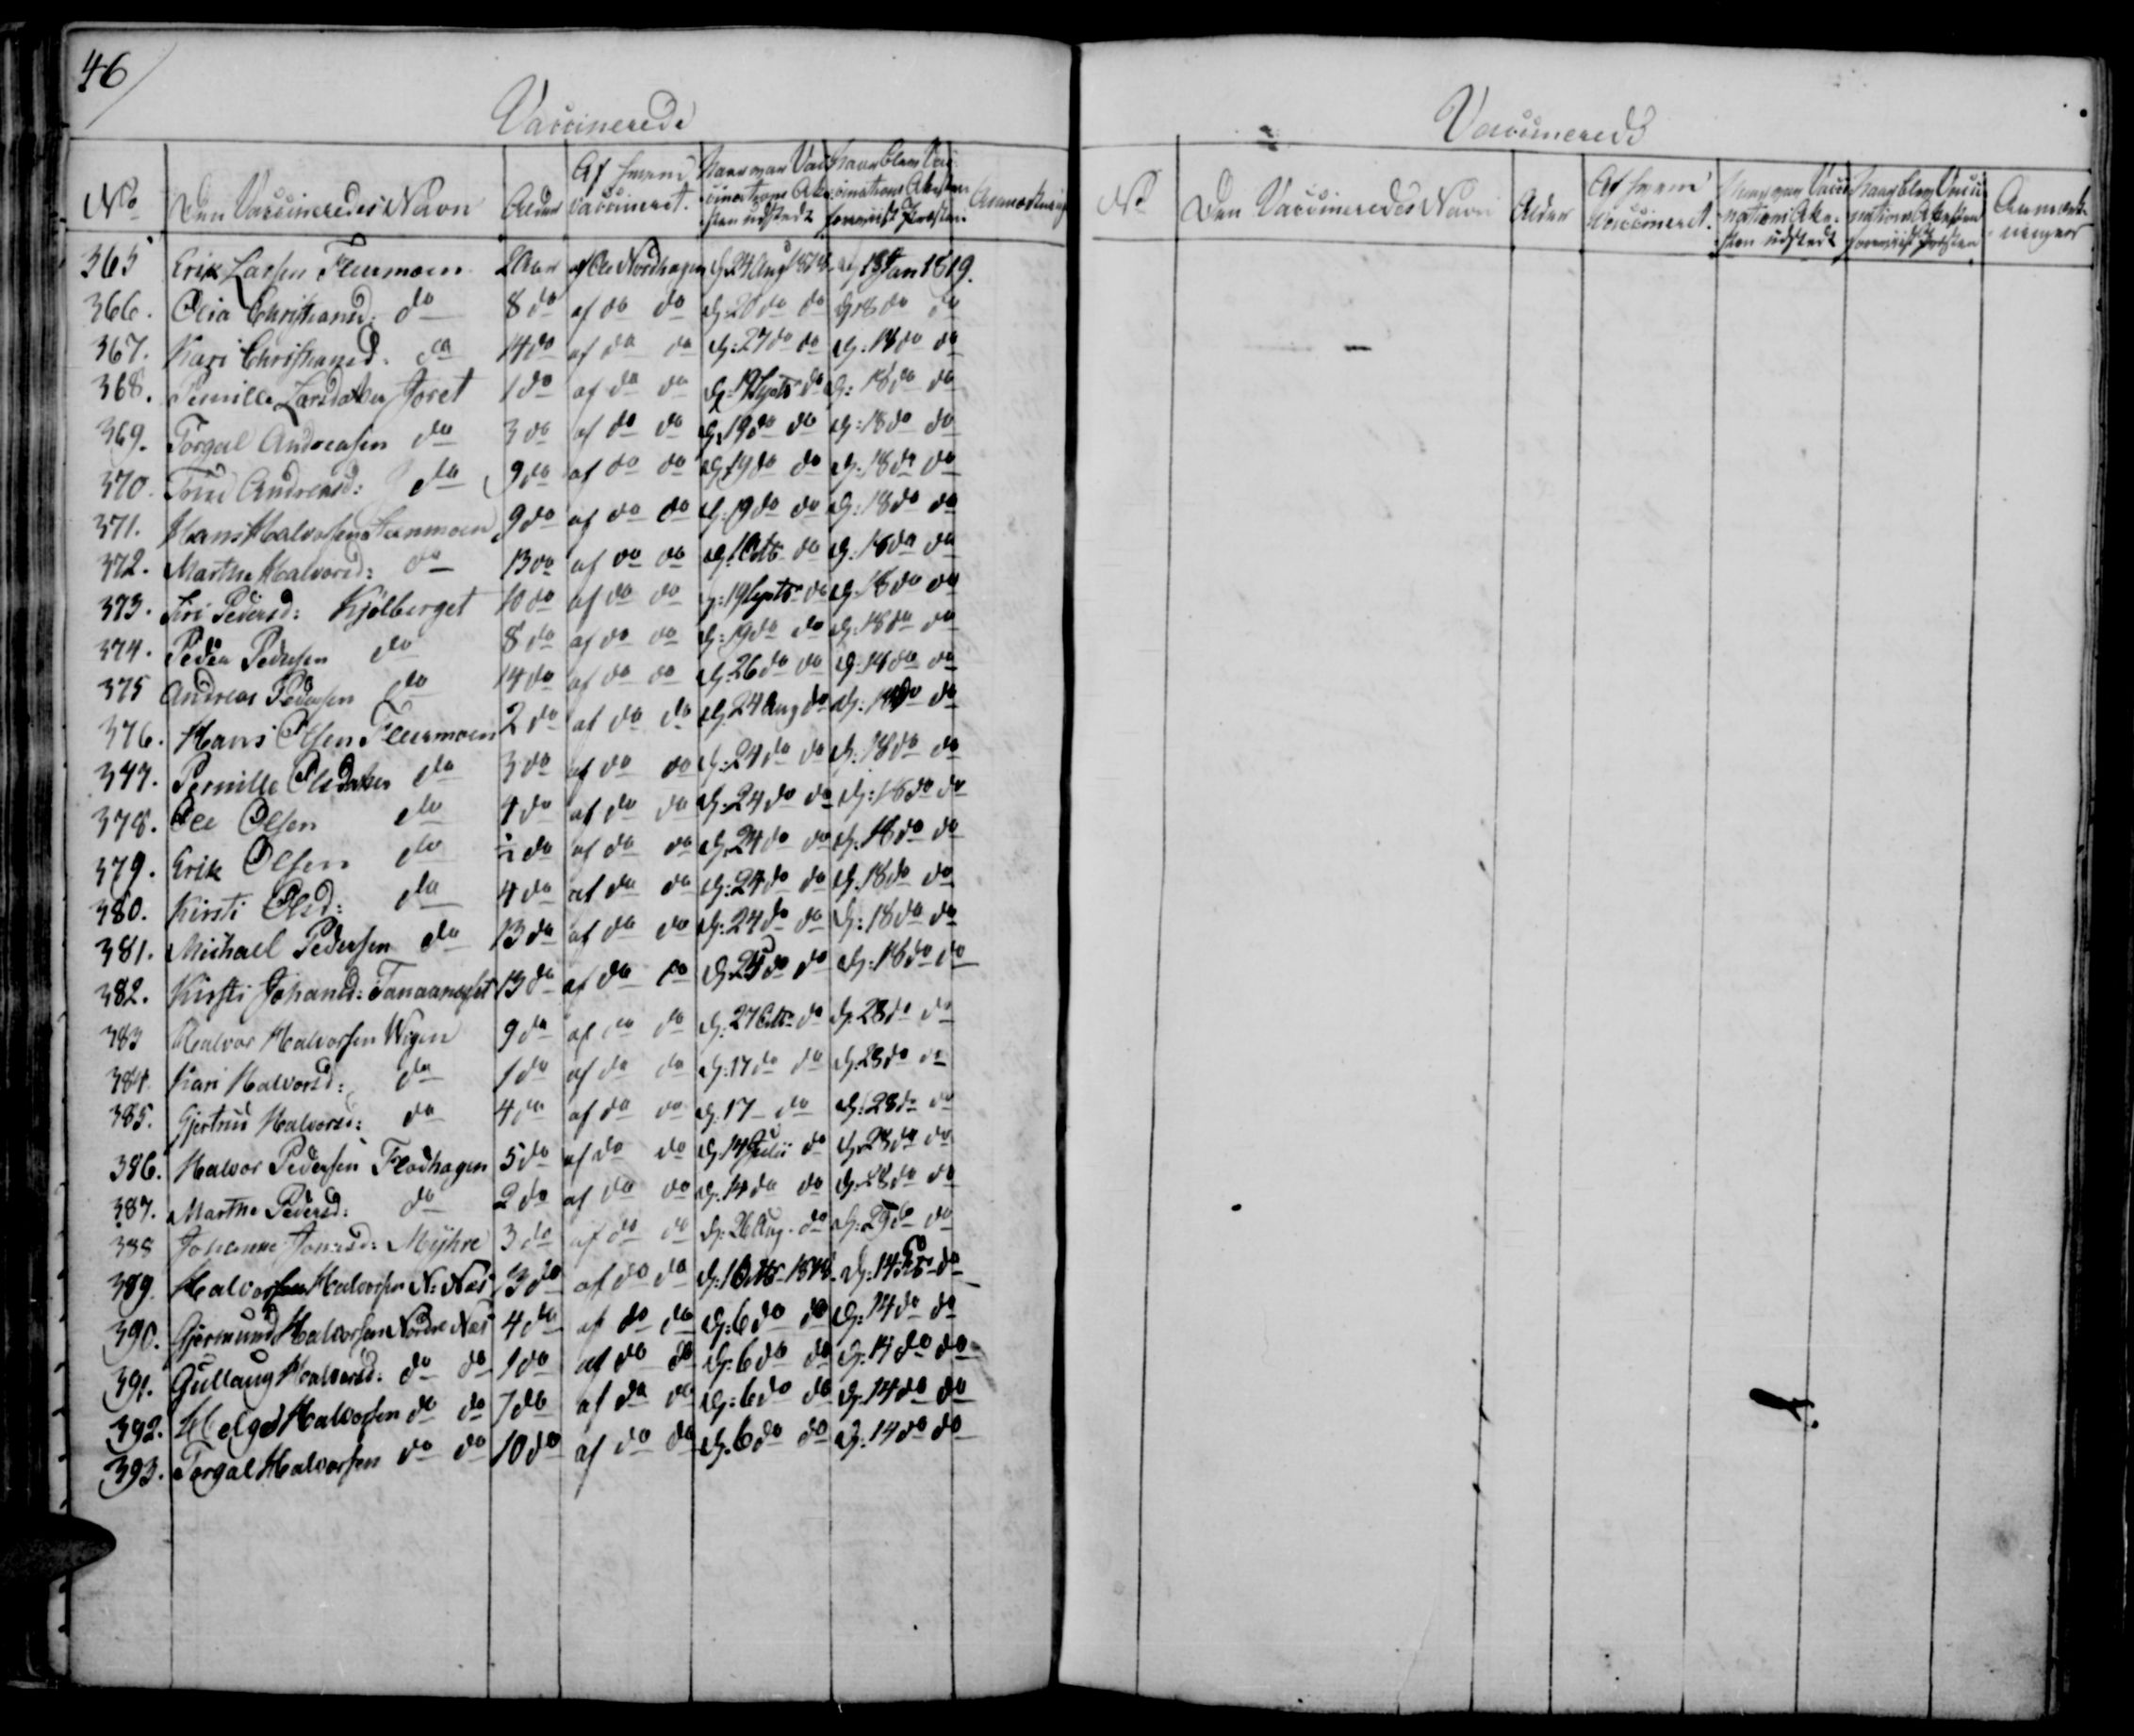 46
Vaccinerede
No Den Vaccineredes Navn Alder Af hvem Vaccineret. Naar var Vaccinations Attesten udstedt Naar blev Vaccinations Attesten foreviist Præsten Anmærkning
365 Erik Larsen Fluermoen 2 Aar af Ole Nordhagen d: 24 Aug 1818 d: 18 Jan 1819.
366. Olia Christiansd: do 8 do af do do d: 20 do do d: 18 do do
367. Kari Christiansd. do 14 do af do do d: 27 do do d: 18 do do
368. Pernille Larsdatter Joret 1 do af do do d: 19 Septb do d: 18 do do
369. Torgal Andreasen do 3 do af do do d: 19 do do d: 18 do do
370. Andreasd: do 9 do af do do d: 19 do do d: 18 do do
371. Hans Halvorsen 9 do af do do d: 19 do do d: 18 do do
372. Marthe Halvorsd: do 13 do af do do d: 1 Octb do d: 18 do do
373. Siri Pedersd: Kjølberget 10 do af do do d: 19 Septb do d: 18 do do
374. Peder Pedersen do 8 do af do do d: 19 do do d: 18 do do
375 Andreas Pedersen do 14 do af do do d: 26 do do d: 18 do do
376. Hans Olsen Fluermoen 2 do af do do d: 24 Aug do d: 18 do do
377. Pernille Olsdatter do 3 do af do do d: 24 do do d: 18 do do
378. Ole Olsen do 4 do af do do d: 24 do do d: 18 do do
379. Erik Olsen do ½ do af do do d: 24 do do d: 18 do do
380. Kirsti Olsd: do 4 do af do do d: 24 do do d: 18 do do
381. Michael Pedersen do 13 do af do do d: 24 do do d: 18 do do
382. Kirsti Johansd: 13 do af do do d: 25 do do d: 18 do do
383 Halvor Halvorsen Wigen 9 do af do do d: 27 Octb do d: 28 do do
384. Kari Halvorsd: do 1 do af do do d: 17 do do d: 28 do do
385. Gjertrud Halvorsd: do 4 do af do do d: 17 do d: 28 do do
386. Halvor Pedersen Flodhagen 5 do af do do d: 14 Julii do d: 28 do do
387. Marthe Pedersd: do 2 do af do do d: 14 do do d: 28 do do
388 Johanne Jonasd: Myhre 3 do af do do d: 26 Aug. do d: 29 do do
389. Halvor Halvorsen N: Næs 13 do af do do d: 1 Octb 1818. d: 14 Feb do
390. Gjermund Halvorsen Nordre Næs 4 do af do do d: 6 do do d: 14 do do
391. Gullaug Halvorsd: do do 1 do af do do d: 6 do do d: 14 do do
392. Helge Halvorsen do do 7 do af do do d: 6 do do d: 14 do do
393. Torgal Halvorsen do do 10 do af do do d: 6 do do d: 14 do do
Vaccinerede
No Den Vaccineredes Navn Alder Af hvem Vaccineret. Naar var Vaccinations Attesten udstedt Naar blev Vaccinations Attesten foreviist Præsten Anmærkninger